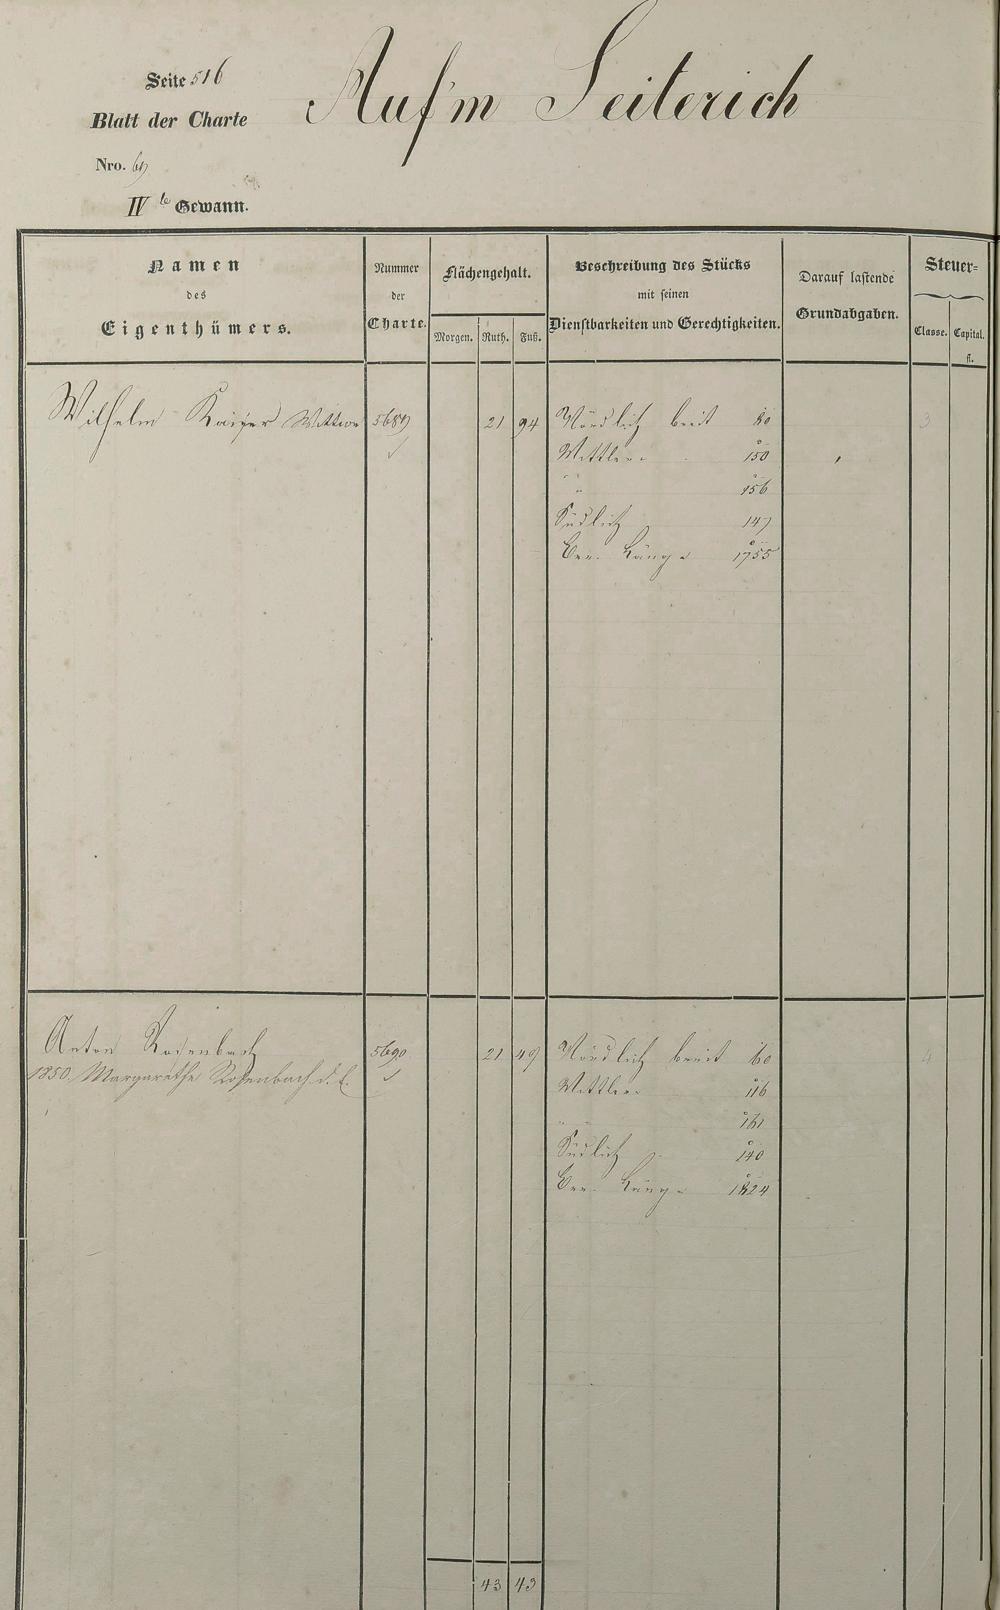 Seite 516
Auf'm Seiterich
Blatt der Charte
Nro. 69
IV te Gewann.
Namen
des
Eigenthümers.
Nummer
der
Charte.
Flächengehalt.
Morgen. Ruth. Fuß.
Beschreibung des Stücks
mit seinen
Dienstbarkeiten und Gerechtigkeiten.
Darauf lastende
Grundabgaben.
Steuer-
Classe. Capital.
fl.
Wilhelm Kaiser Wittwe 5689 21 94 Nördlich breit 3
Mittlere 150
" 156
Südlich 147
Länge 1755
Anton Rosenbach 5690 21 49 Nördlich breit 160 4
1850. Margarethe Rosenbach d. L.
Mittlere 116
" 161
Südlich " 140
Länge 1824
43 43